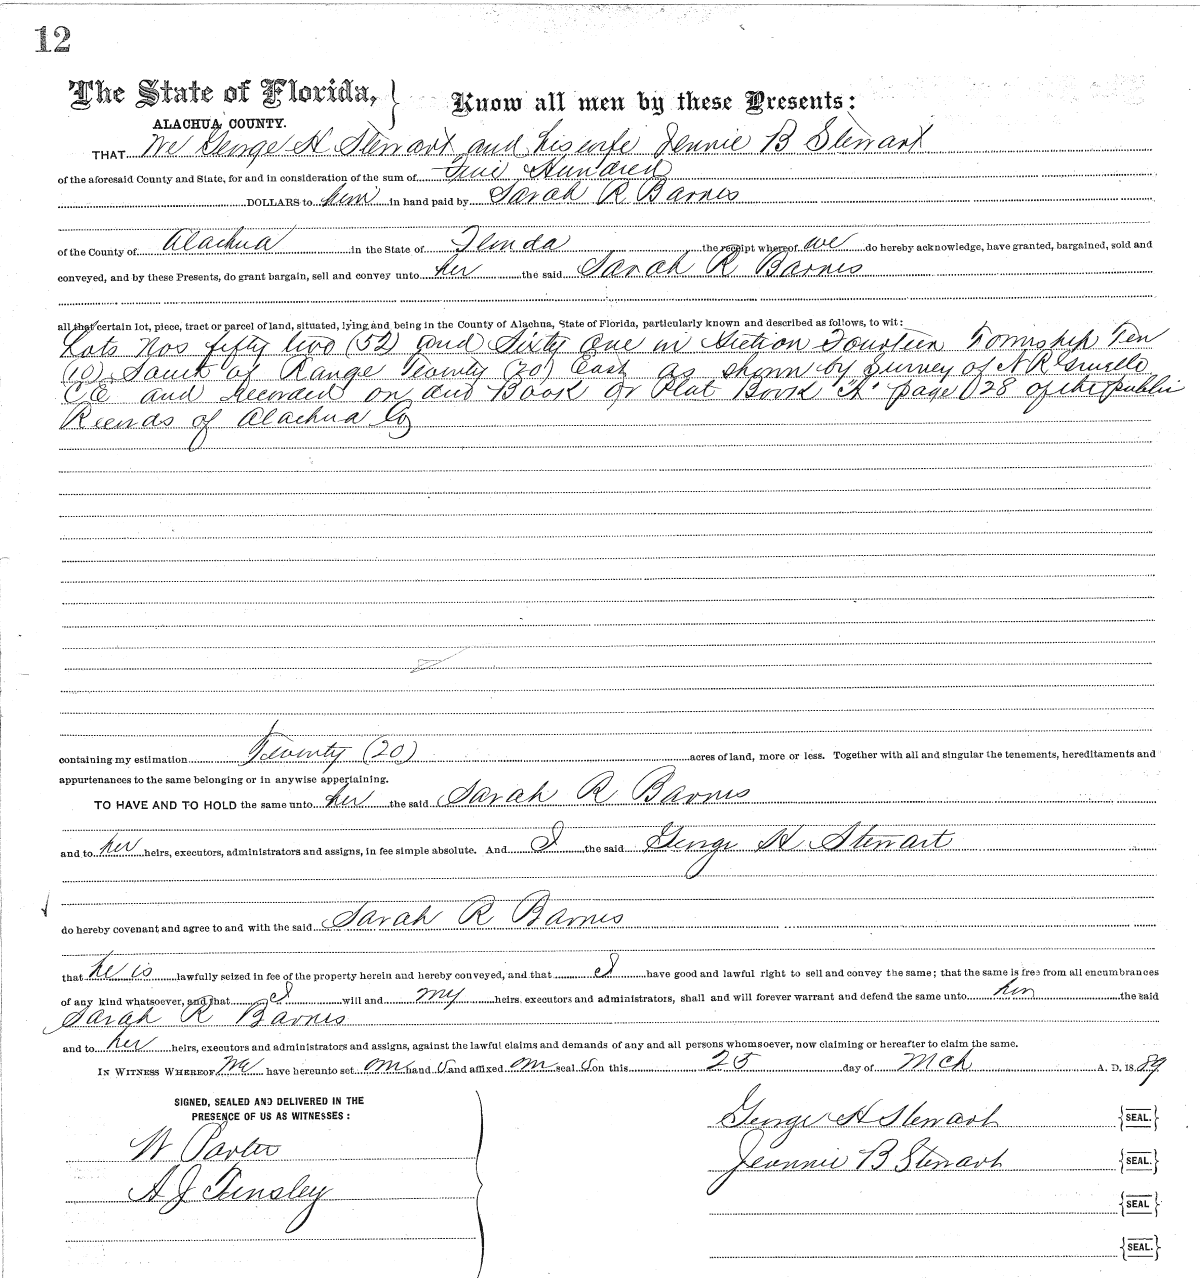 12
The State of Florida, } Know all men by these Presents:
ALACHUA COUNTY.
THAT We George H Stewart and his wife Jennie B Stewart
of the aforesaid County and State, for and in consideration of the sum of Five Hundred
DOLLARS to him in hand paid by Sarah R Barnes
of the County of Alachua in the State of Florida the receipt whereof we do hereby acknowledge, have granted, bargained, sold and
conveyed, and by these Presents, do grant bargain, sell and convey unto her the said Sarah R Barnes
all that certain lot, piece, tract or parcel of land, situated, lying and being in the County of Alachua, State of Florida, particularly known and described as follows, to wit:
Lots Nos fifty two (52) and Sixty One in Section Fourteen Township Ten
(10) South of Range Twenty (20) East as shown by Survey of N R
C E and recorded on Book or Plat Book "A" page 128 of the public
Records of Alachua Co
containing my estimation Twenty (20) acres of land, more or less. Together with all and singular the tenements, hereditaments and
appurtenances to the same belonging or in anywise appertaining.
TO HAVE AND TO HOLD the same unto her the said Sarah R Barnes
and to her heirs, executors, administrators and assigns, in fee simple absolute. And I the said George H Stewart
do hereby covenant and agree to and with the said Sarah R Barnes
that he is lawfully seized in fee of the property herein and hereby conveyed, and that I have good and lawful right to sell and convey the same; that the same is free from all encumbrances
of any kind whatsoever, and that I will and my heirs. executors and administrators, shall and will forever warrant and defend the same unto her the said
Sarah R Barnes
and to her heirs, executors and administrators and assigns, against the lawful claims and demands of any and all persons whomsoever, now claiming or hereafter to claim the same.
IN WITNESS WHEREOF We have hereunto set our hand s and affixed our seal s on this 25 day of Mch A. D. 1889
SIGNED, SEALED AND DELIVERED IN THE
PRESENCE OF US AS WITNESSES:
George H Stewart {SEAL.}
W Porter
Jeannie B Stewart {SEAL.}
A J Tinsley
{SEAL}
{SEAL.}